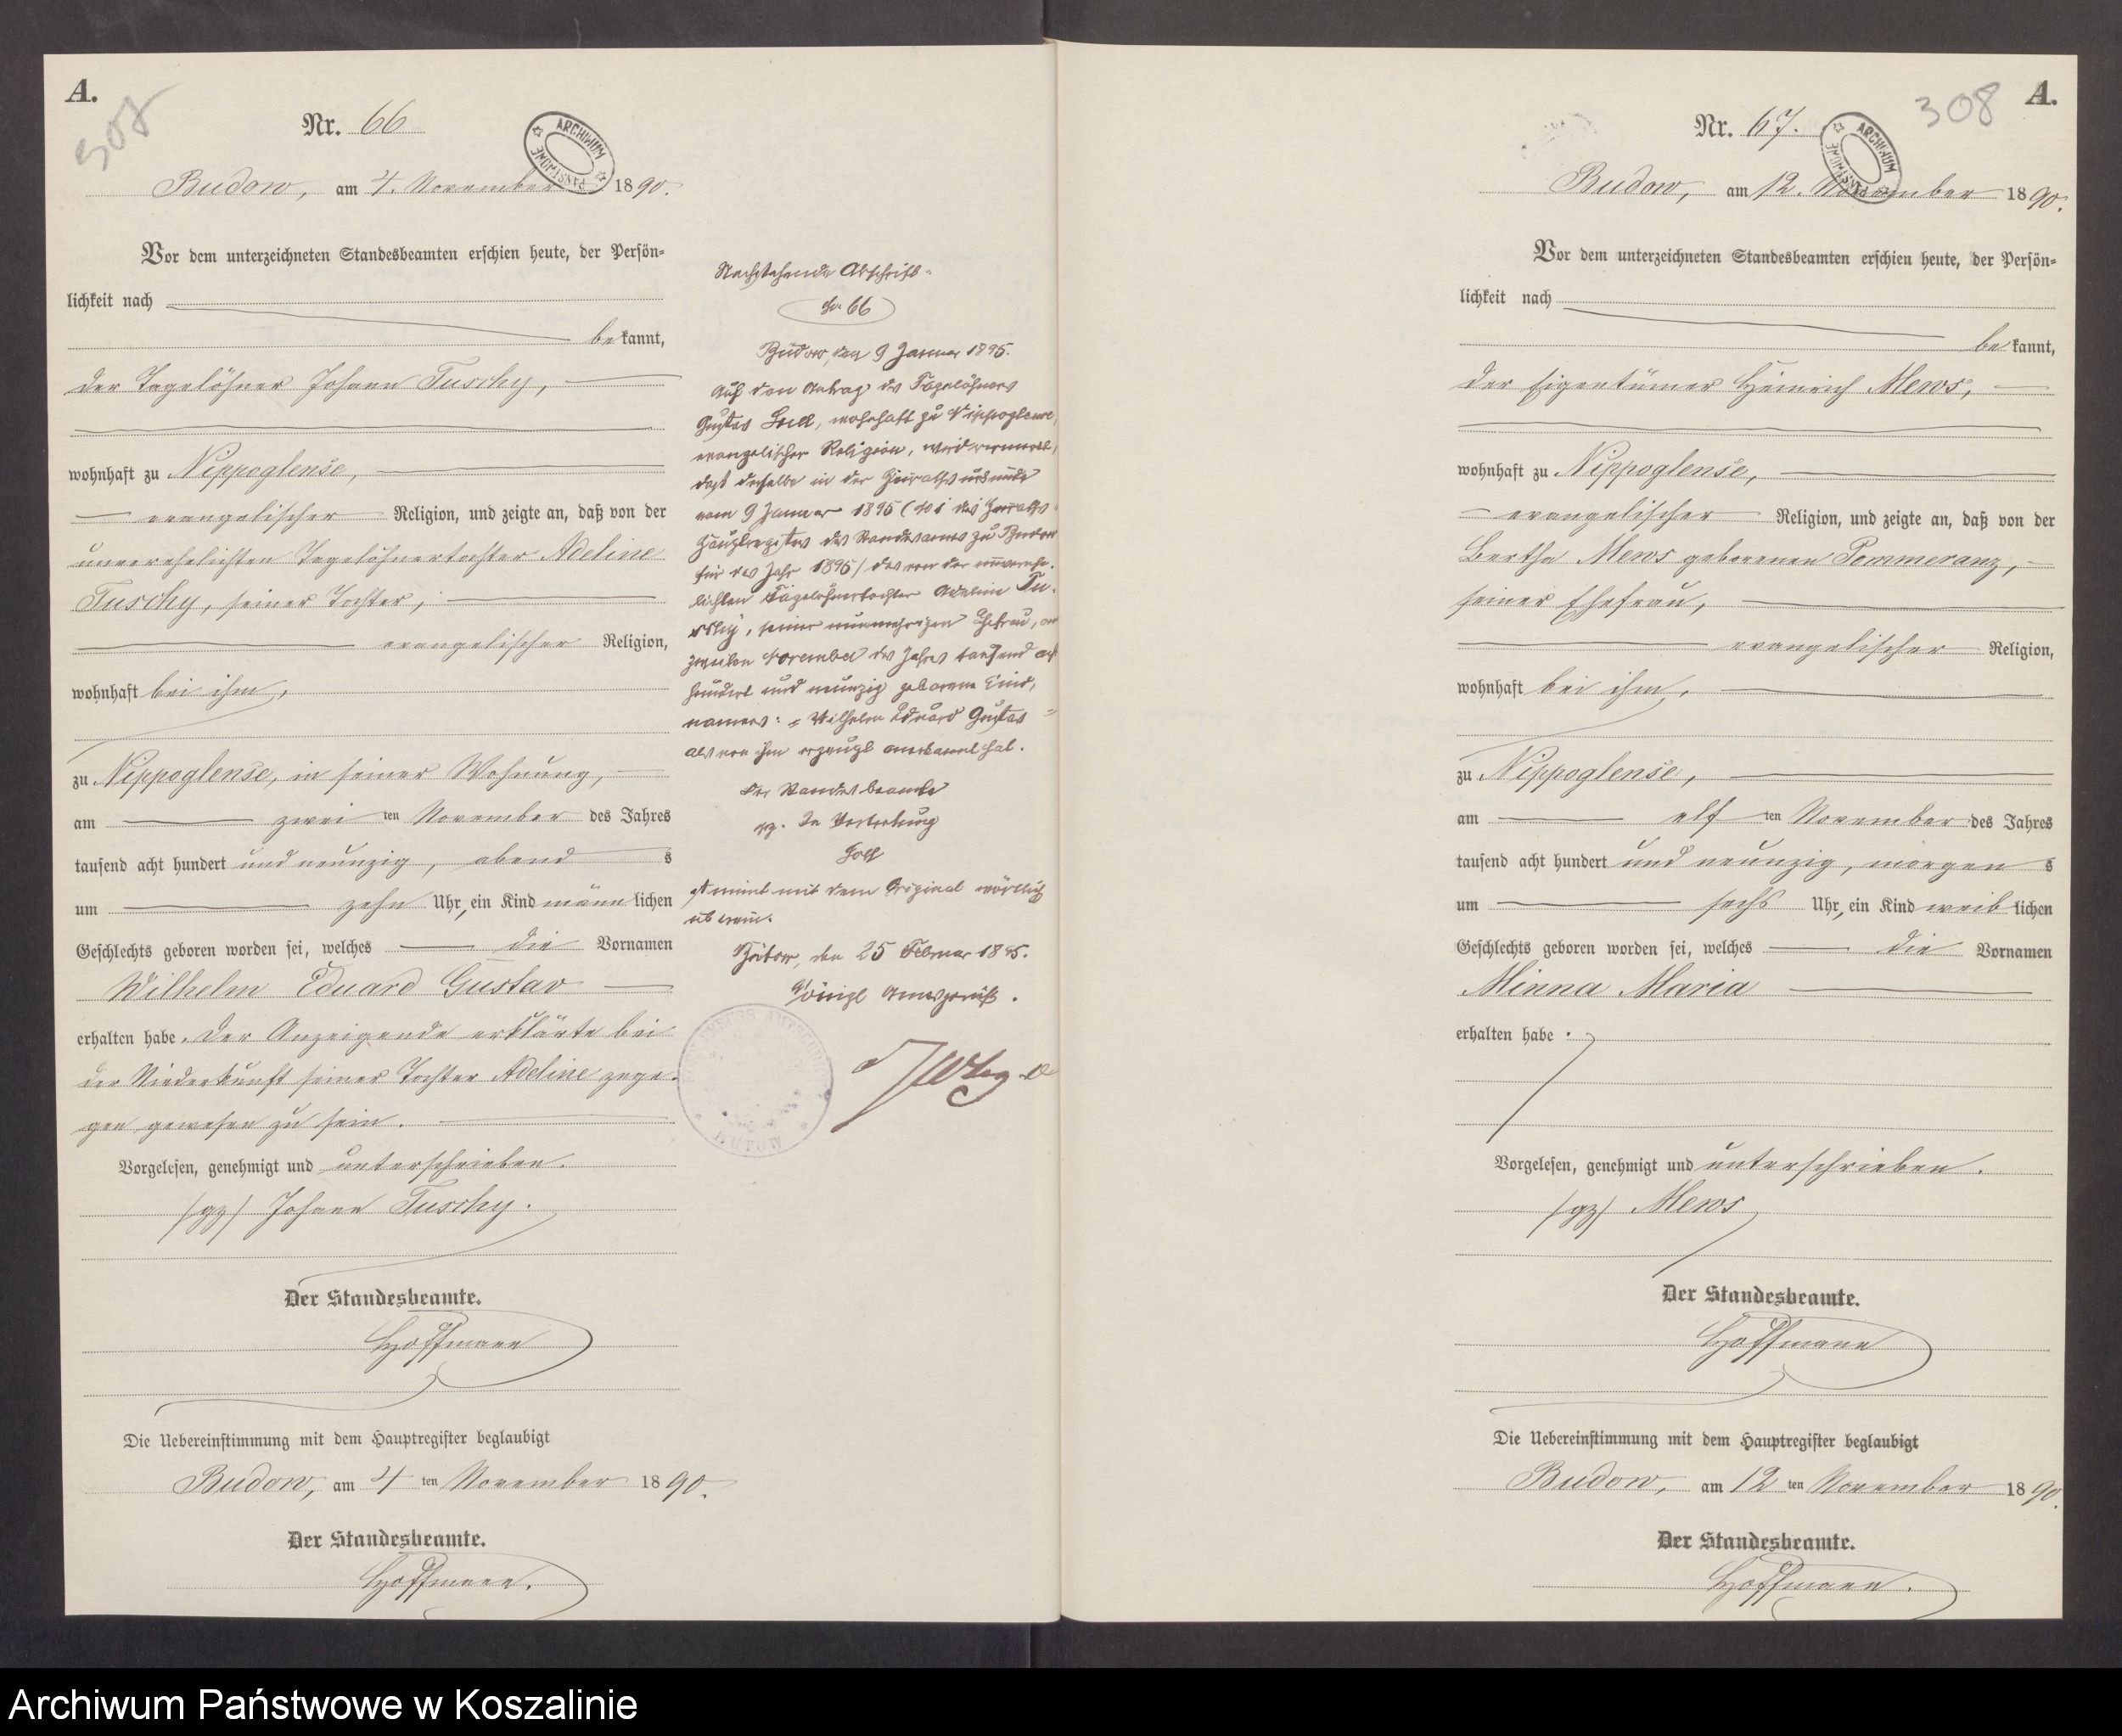 A.
308
Nr. 66
ARCHIWUM PAŃSTWOWE
Budow, am 4. November 1890.
Vor dem unterzeichneten Standesbeamten erschien heute, der Persön-
lichkeit nach
bekannt,
der Tagelöhner Johann Tuschy,
wohnhaft zu Nippoglense,
evangelischer Religion, und zeigte an, daß von der
unverehelichten Tagelöhnertochter Adeline
Tuschy, seiner Tochter,
evangelischer Religion,
wohnhaft bei ihm,
zu Nippoglense, in seiner Wohnung,
am zwei ten November des Jahres
tausend acht hundert und neunzig, abend s
um zehn Uhr, ein Kind männlichen
Geschlechts geboren worden sei, welches die Vornamen
Wilhelm Eduard Gustav
erhalten habe. Der Anzeigende erklärte bei
der Niederkunft seiner Tochter Adeline zuge-
gen gewesen zu sein.
Vorgelesen, genehmigt und unterschrieben.
(gz) Johann Tuschy.
Der Standesbeamte.
Hoffmann
Die Uebereinstimmung mit dem Hauptregister beglaubigt
Budow, am 4 ten November 1890.
Der Standesbeamte.
Hoffmann.
Nachstehende Abschrift:
No. 66
Budow, den 9 Januar 1895.
Auf den Antrag des Tagelöhners
Gustav, wohnhaft zu Nippoglense,
evangelischer Religion, wird vermerkt,
daß derselbe in der Heirathsurkunde
vom 9 Januar 1895 (No 1 des Heiraths-
Hauptregisters des Standesamts zu Budow
für das Jahr 1895) das von der unverehe-
lichten Tagelöhnertochter Adeline Tu-
schy, seiner nunmehrigen Ehefrau, am
zweiten November des Jahres tausend acht
hundert und neunzig geborene Kind,
namens: Wilhelm Eduard Gustav
als von ihm erzeugt anerkannt hat.
Der Standesbeamte
gz. In Vertretung
Stimmt mit dem Original wörtlich
überein.
Bütow, den 25 Februar 1895.
Königl Amtsgericht.
BÜTOW
A.
308
Nr. 67.
ARCHIWUM PAŃSTWOWE
Budow, am 12. November 1890.
Vor dem unterzeichneten Standesbeamten erschien heute, der Persön-
lichkeit nach
bekannt,
der Eigentümer Heinrich Mews,
wohnhaft zu Nippoglense,
evangelischer Religion, und zeigte an, daß von der
Bertha Mews geborenen Pommerang,
seiner Ehefrau,
evangelischer Religion,
wohnhaft bei ihm,
zu Nippoglense,
am elf ten November des Jahres
tausend acht hundert und neunzig, morgen s
um sechs Uhr, ein Kind weiblichen
Geschlechts geboren worden sei, welches die Vornamen
Minna Maria
erhalten habe.
Vorgelesen, genehmigt und unterschrieben.
(gz) Mews
Der Standesbeamte.
Hoffmann
Die Uebereinstimmung mit dem Hauptregister beglaubigt
Budow, am 12 ten November 1890.
Der Standesbeamte.
Hoffmann.
Archiwum Państwowe w Koszalinie